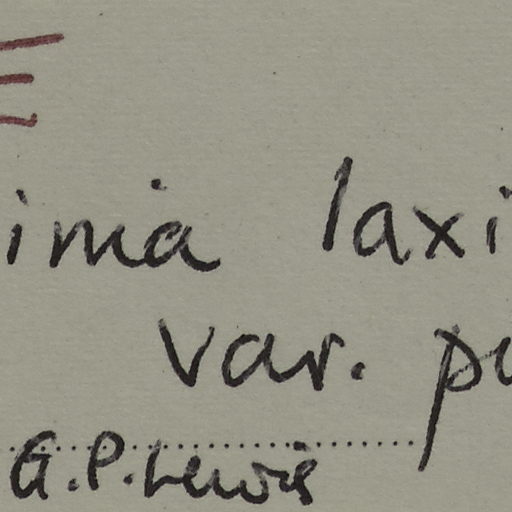 inia laxi
var. pu
G.P. Lewis